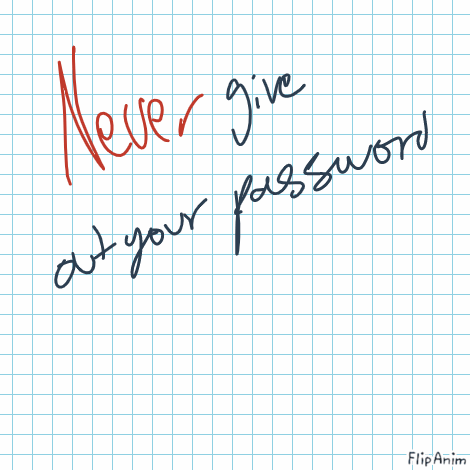 Never give
out your password
FlipAnim